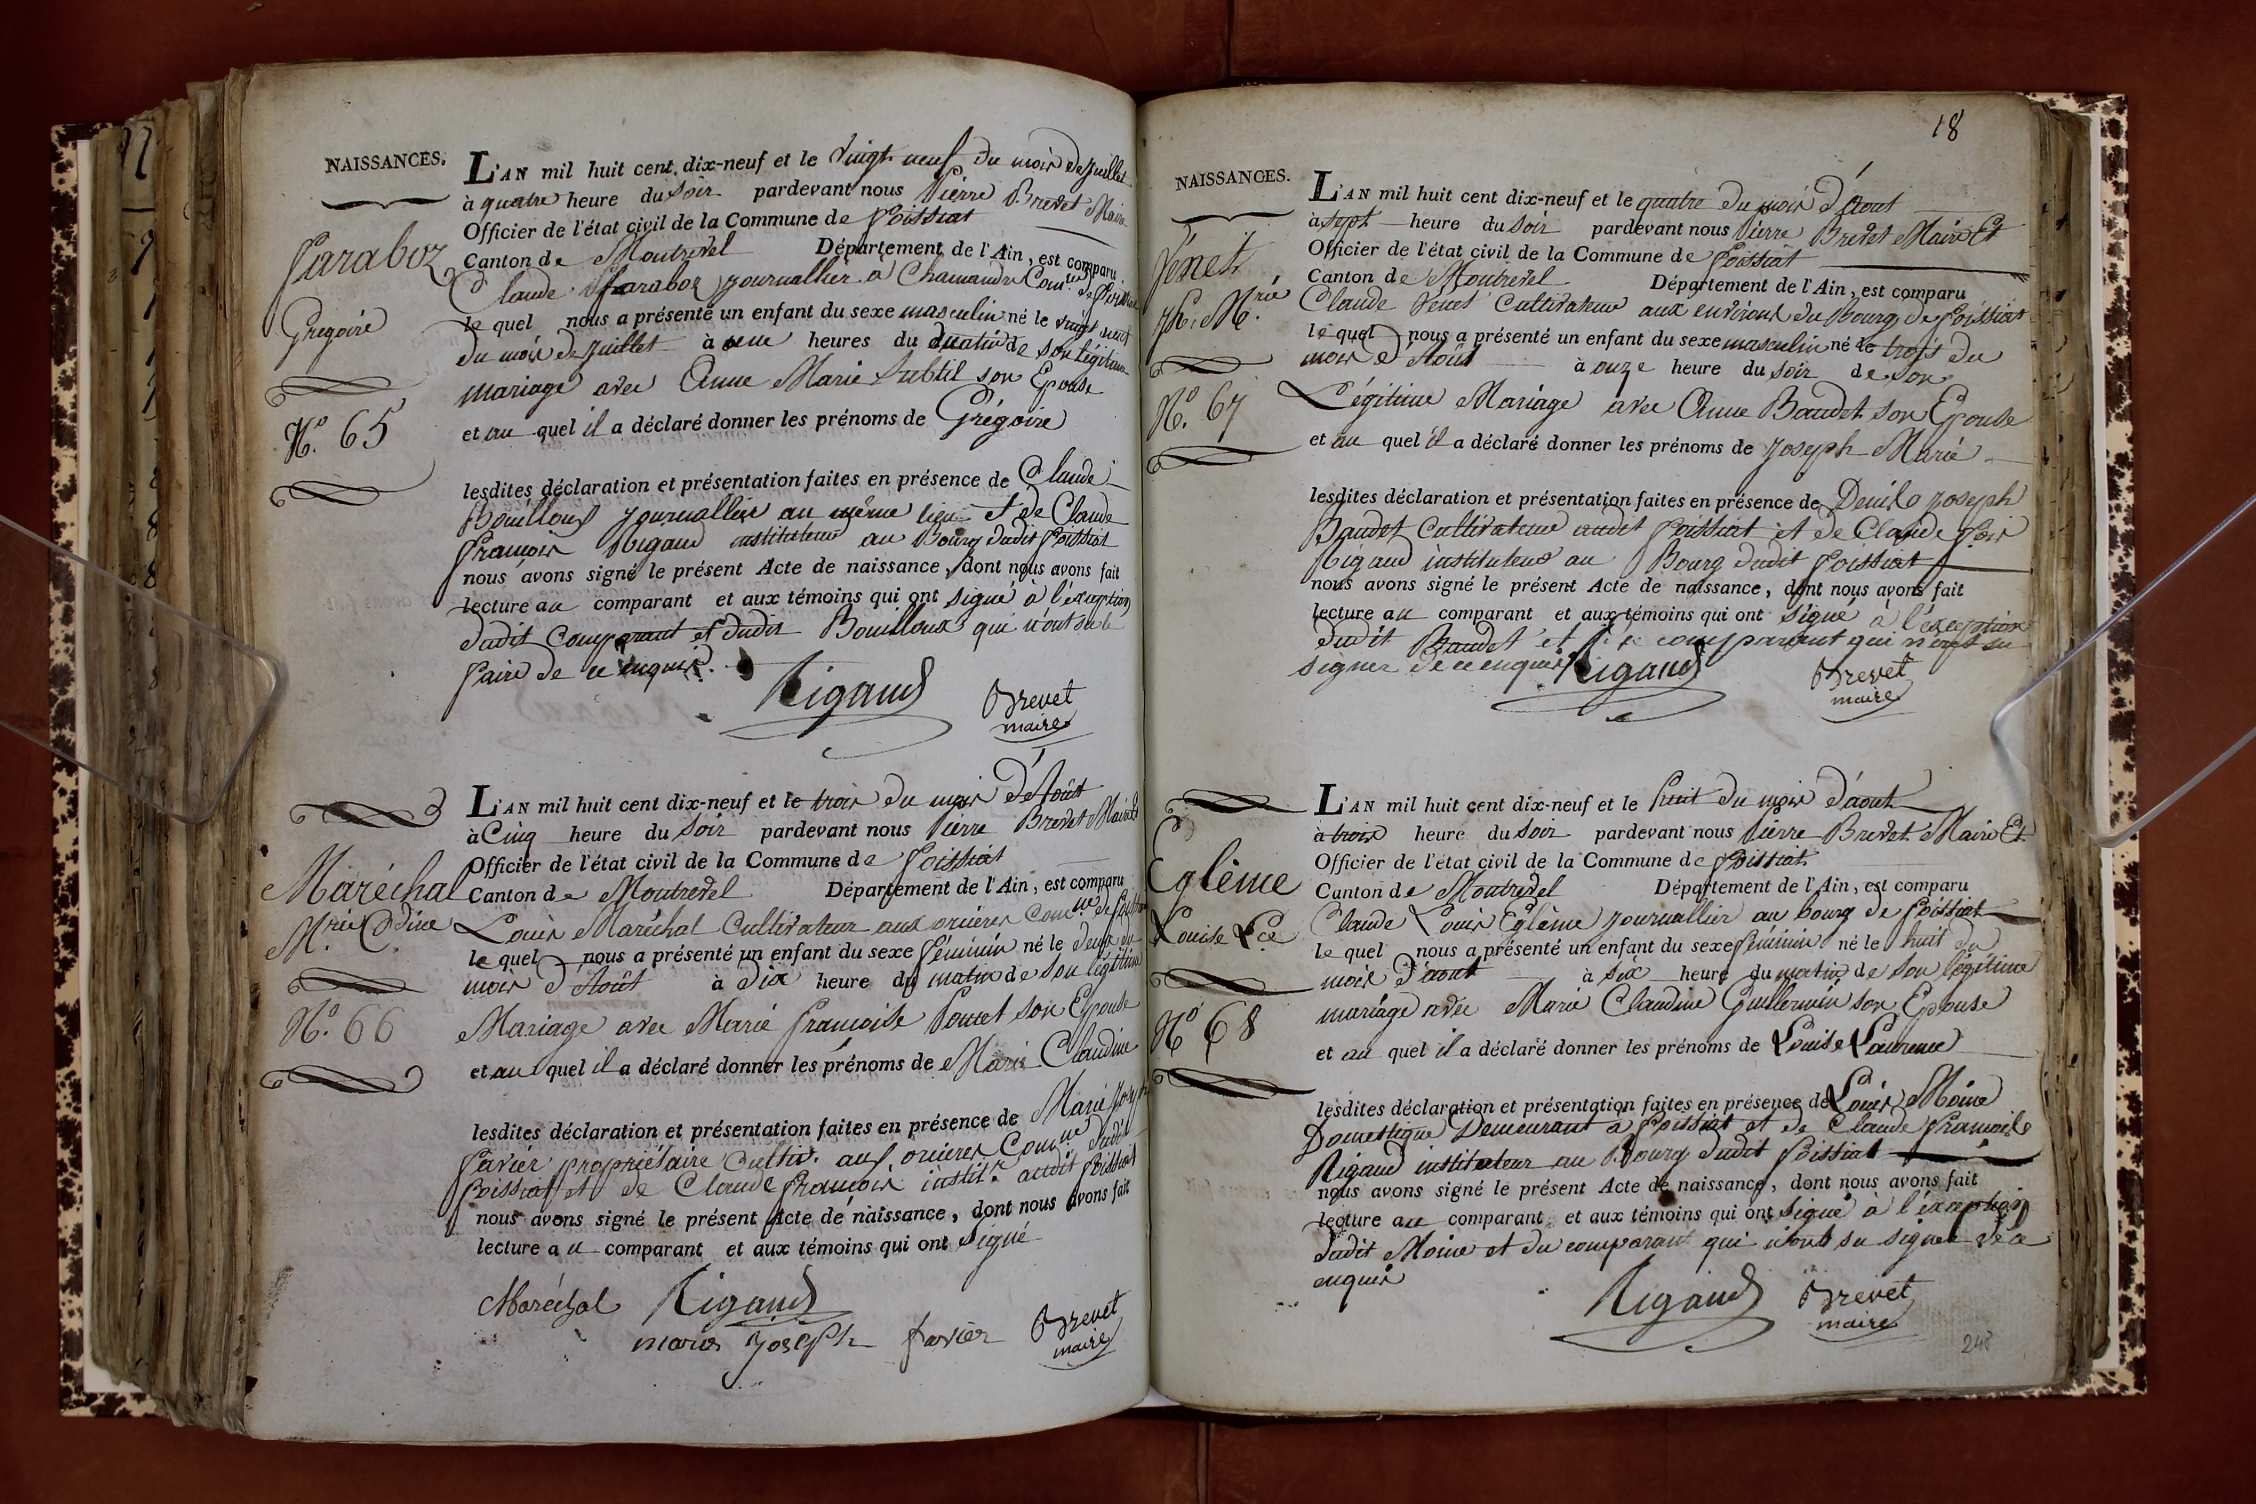 NAISSANCES.
L'AN mil huit cent dix-neuf et le vingt neuf du mois de juillet
à quatre heure du soir pardevant nous Pierre Brevet Maire
Officier de l'état civil de la Commune de Foissiat
Canton de Montrevel Département de l'Ain, est comparu
Claude Faraboz journallier à Chamandre Com.ne de Foissiat
le quel nous a présenté un enfant du sexe masculin né le vingt neuf
du mois de juillet à heures du matin de son légitime
mariage avec Anne Marie Subtil son Epouse
et au quel il a déclaré donner les prénoms de Grégoire
Faraboz
Grégoire
N.o 65
lesdites déclaration et présentation faites en présence de Claude
Bouilloux journallier au même lieu et de Claude
françois Rigaud instituteur au Bourg dudit foissiat
nous avons signé le présent Acte de naissance, dont nous avons fait
lecture au comparant et aux témoins qui ont signé à l'exception
dudit comparant et dudit Bouilloux qui n'ont su le
faire de ce enquis.
Rigaud
Brevet
maire
L'AN mil huit cent dix-neuf et le trois du mois d'Août
à Cinq heure du soir pardevant nous Pierre Brevet Maire Et
Officier de l'état civil de la Commune de Foissiat
Canton de Montrevel Département de l'Ain, est comparu
Louis Maréchal Cultivateur aux orcières com.ne de foissiat
le quel nous a présenté un enfant du sexe féminin né le deux du
mois d'Août à dix heure du matin de son légitime
Mariage avec Marie françoise Poncet son Epouse
et au quel il a déclaré donner les prénoms de Marie Claudine
Maréchal
M.rie Cdine
N.o 66
lesdites déclaration et présentation faites en présence de Marie Joseph
favier propriétaire Cultiv. aux orcieres Com.ne dudit
foissiat et de Claude françois instit.r audit foissiat
nous avons signé le présent Acte de naissance, dont nous avons fait
lecture au comparant et aux témoins qui ont signé
Maréchal Rigaud
marie joseph favier
Brevet
maire
18
NAISSANCES.
L'AN mil huit cent dix-neuf et le quatre du mois d'Aout
à sept heure du soir pardevant nous Pierre Brevet Maire Et
Officier de l'état civil de la Commune de foissiat
Canton de Montrevel Département de l'Ain, est comparu
Claude Venet Cultivateur aux environs du Bourg de foissiat
le quel nous a présenté un enfant du sexe masculin né le trois du
mois d'Août à onze heure du soir de son
Légitime Mariage avec Anne Baudet son Epouse
et au quel il a déclaré donner les prénoms de Joseph Marie
Vénet
Jph. M.rie
N.o 67
lesdites déclaration et présentation faites en présence de Denis Joseph
Baudet Cultivateur audit foissiat et de Claude f.ois
Rigaud instituteur au Bourg dudit foissiat
nous avons signé le présent Acte de naissance, dont nous avons fait
lecture au comparant et aux témoins qui ont signé à l'exception
dudit Baudet et comparant qui n'ont su
signer de ce enquis
Rigaud
Brevet
maire
L'AN mil huit cent dix-neuf et le huit du mois d'aout
à trois heure du soir pardevant nous Pierre Brevet Maire Et
Officier de l'état civil de la Commune de foissiat
Canton de Montrevel Département de l'Ain, est comparu
Claude Louis Eglème journallier au bourg de foissiat
le quel nous a présenté un enfant du sexe féminin né le huit du
mois d'aout à six heure du matin de son légitime
mariage avec Marie Claudine Guillermin son Epouse
et au quel il a déclaré donner les prénoms de Louise Laurence
Eglème
Louise Lce
No 68
lesdites déclaration et présentation faites en présence de Louis Moine
Domestique Demeurant à foissiat et de Claude françois
Rigaud instituteur au Bourg dudit foissiat
nous avons signé le présent Acte de naissance, dont nous avons fait
lecture au comparant et aux témoins qui ont signé à l'exception
dudit Moine et du comparant qui n'ont su signer de ce
enquis
Rigaud
Brevet
maire